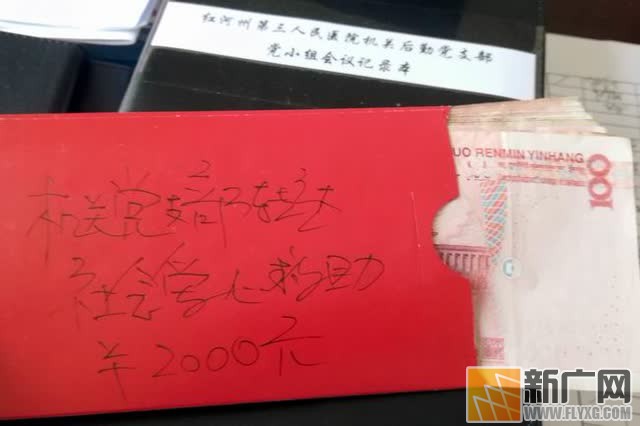 红河州第三人民医院机关后勤党支部
党小组会议记录本
UO RENMIN YINHANG
100
机关党支部转交
社会学 救助
¥2000元
新广网
WWW.FLYXG.COM